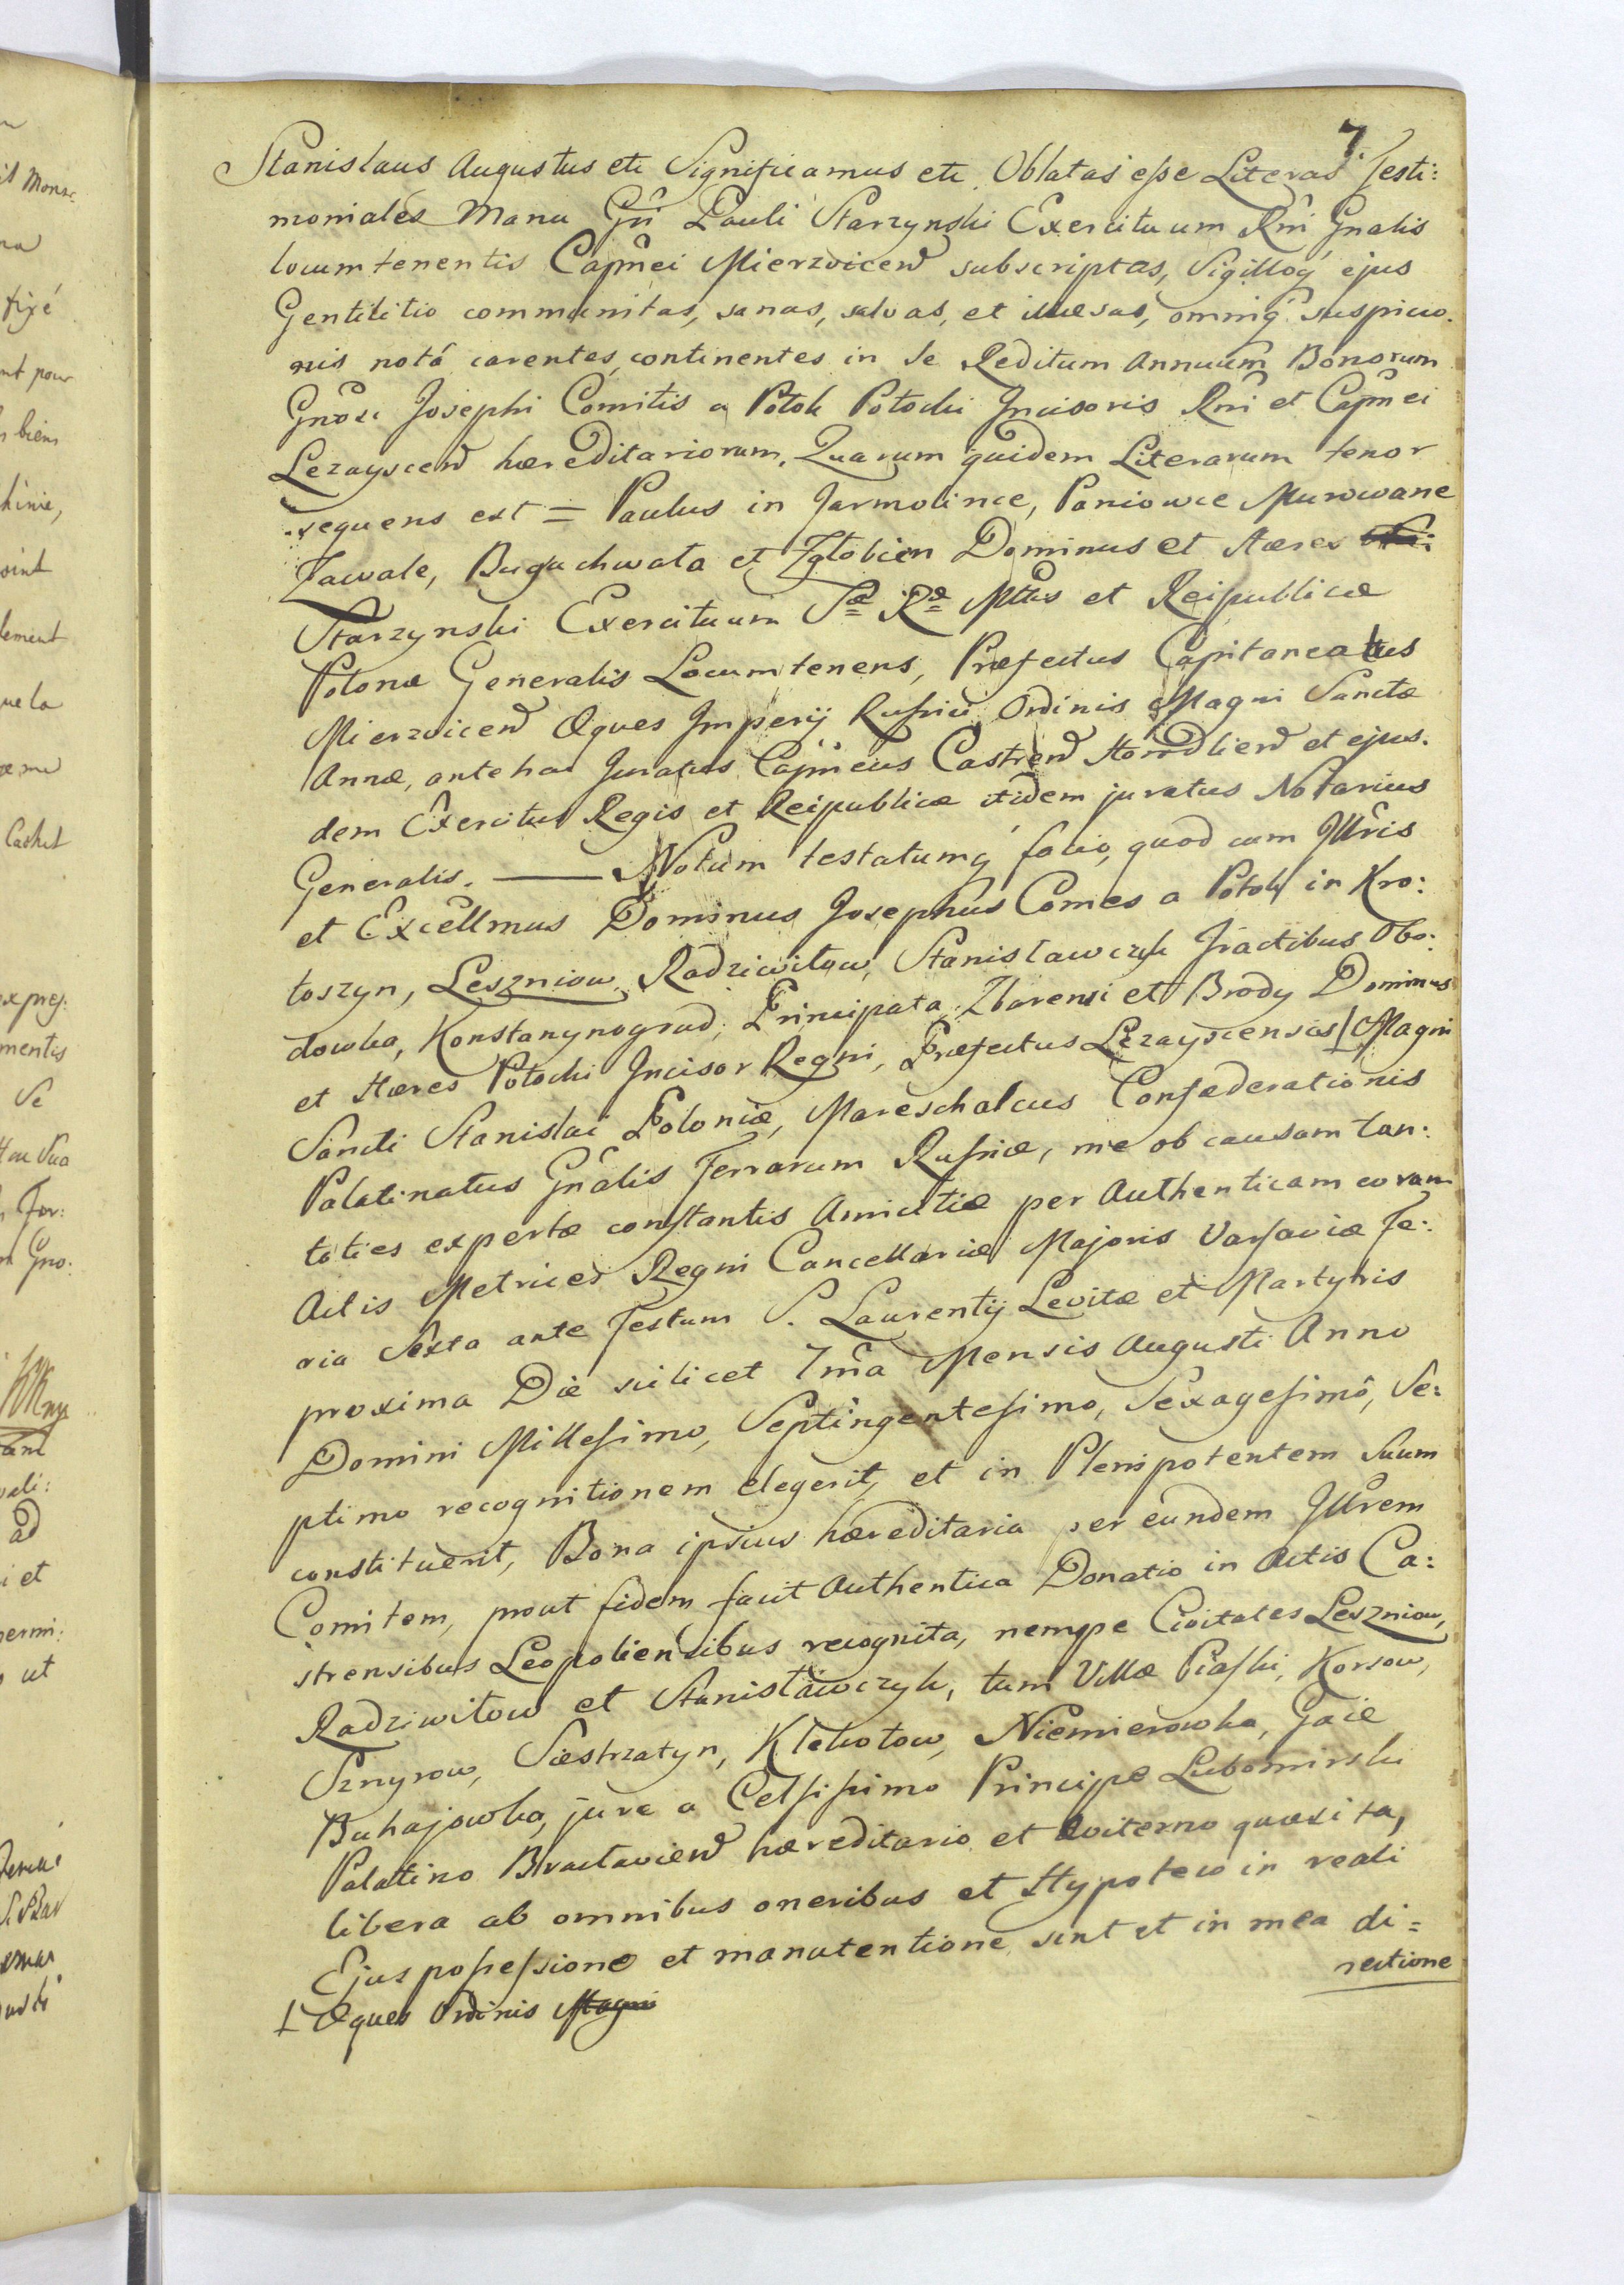 7
Stanislaus Augustus etc Significamus etc. Oblatas esse Literas Testi:
moniales Manu Gñi Pauli Starzynski Exercituum Rñi Gnalis
locumtenentis Capñei Mierzvicen̄ subscriptas, Sigilloq̃ ejus
Gentilitio communitas, sanas, salvas, et illæsas, omniq̃ suspicio
nis notâ carentes, continentes in se Reditum Annuum Bonorum
Gnosi Josephi Comitis a Potok Potocki Incisoris Rñi et Capñei
Lezayscen̄ hæreditariorum, Quarum quidem Literarum tenor
sequens est = Paulus in Jarmolince, Paniowce Murowane
Zawale, Buguchwata et Zgłobien Dominus et Hæres
Starzynski Exercituum Sæ Ræ Mttis et Reipublicæ
Polonæ Generalis Locumtenens, Præfectus Capitaneatus
Mierzvicen̄ Æques Imperij Russici Ordinis Magni Sanctæ
Annæ, antehac Juratus Capñeus Castren̄ Horodlien̄ et ejus.
dem Exercitus Regis et Reipublicæ itidem juratus Notarius
Generalis. — Notum testatumq̃ facio, quod cum Jllřis
et Excellmus Dominus Josephus Comes a Potok in Kro:
toszyn, Leszniow, Radziwiłow, Stanisławczyk Tractibus Obo:
dowka, Konstanynograd, Principata Zbarensi et Brody Dominus
et Hæres Potocki Incisor Regni, Præfectus Lezayscensis ⊥ Magni
Sancti Stanislai Poloniæ, Mareschalcus Confæderationis
Palatinatus Gñalis Terrarum Russiæ, me ob causam tan:
toties expertæ constantis Amicitiæ per Authenticam coram
Actis Metrices Regni Cancellariæ Majoris Varsaviæ Fe:
ria Sexta ante Festum S. Laurentij Levitæ et Martyris
proxima Die scilicet 7mâ Mensis Augusti Anno
Domini Millesimo, Septingentesimo, Sexagesimô, Se:
ptimo recognitionem elegerit, et in Plenipotentem Suum
constituerit, Bona ipsius hæreditaria per eundem Jllřem
Comitem, prout fidem facit Authentica Donatio in Actis Ca:
strensibus Leopoliensibus recognita, nempe Civitates Leszniow,
Radziwiłow et Stanisławczyk, tum Villæ Piaski, Korsow,
Sznyrow, Siestrzatyn, Klekotow, Niemierowka, Gaie
Buhajowka, jure a Celsissimo Principe Lubomirski
Palatino Bractavien̄ hæreditario et æviterno quæsita,
libera ab omnibus oneribus et Hypoteco in reali
Ejus possessione et manutentione sint et in mea di=
rectione
⊥ Æques Ordinis Magni